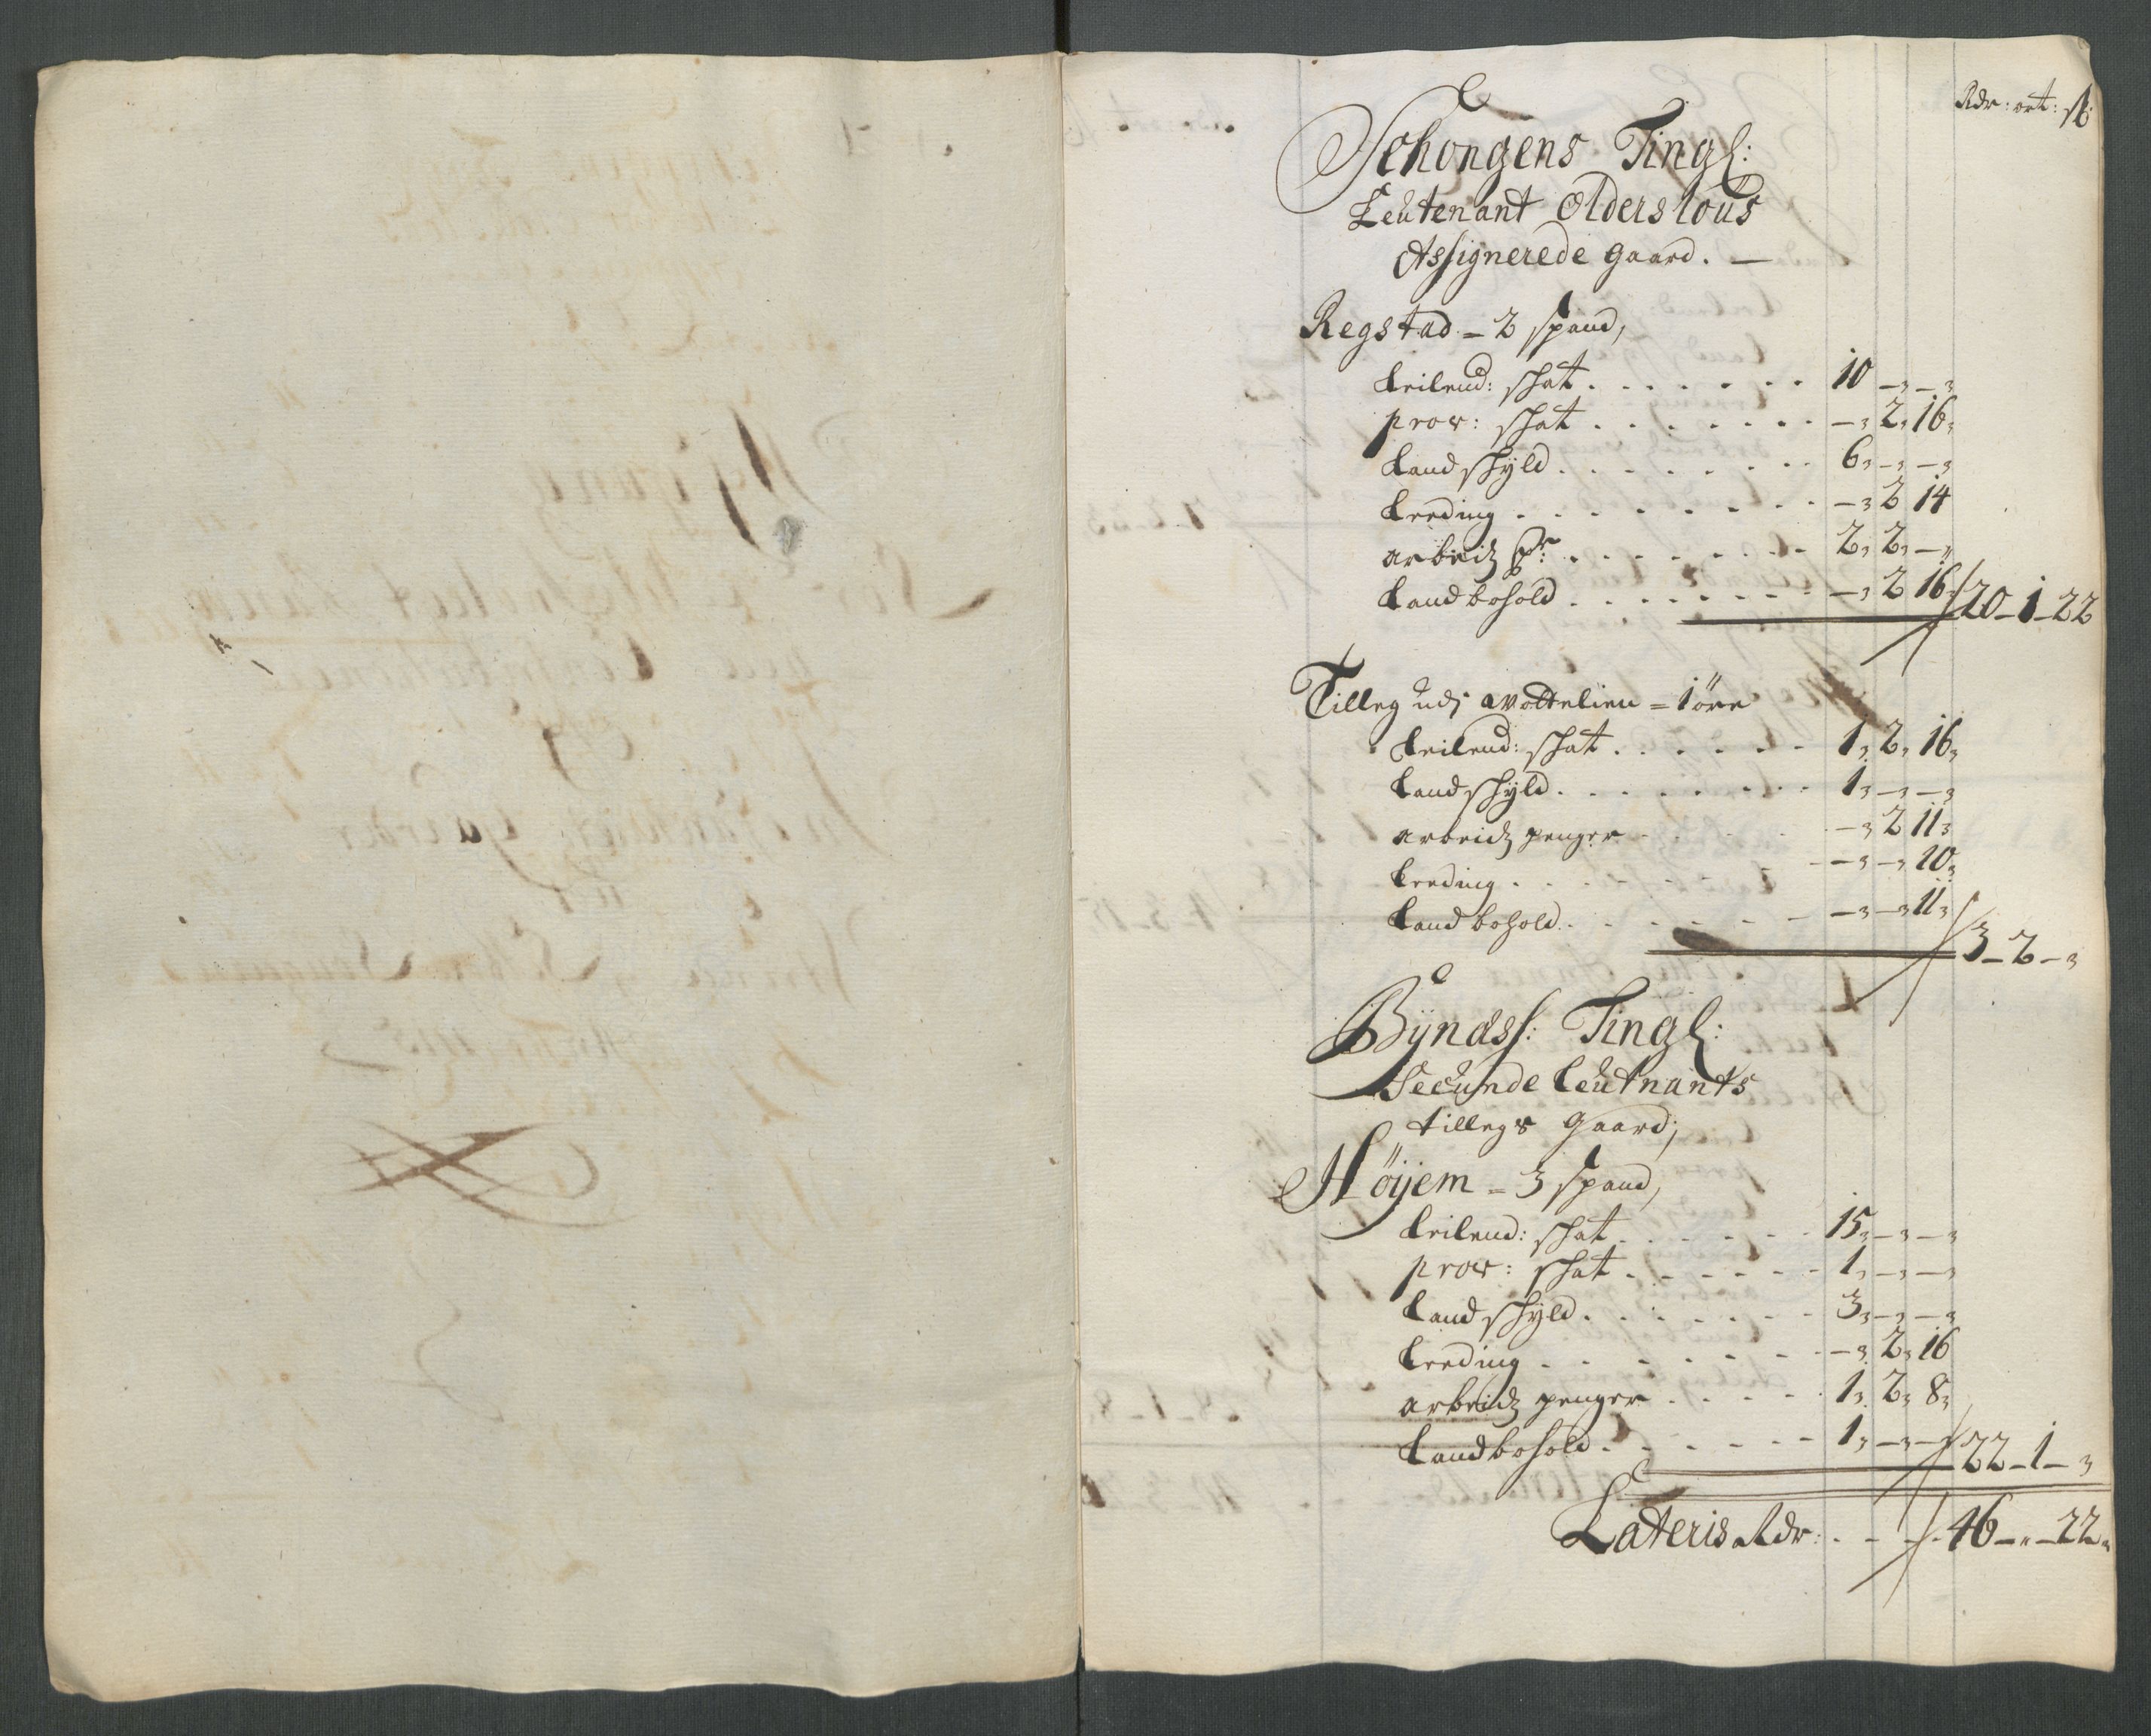 Rdr: ort: ß
Schongens Tingl:
Leutenant Olderslous
Assignerede gaard. —
Regstad = 2 spand,
Leilend: schat . . . . . . . 10 „ — „ — „
prov: schat . . . . . . . — „ 2 „ 16 „
Landschyld . . . . . . . . 6 „ — „ — „
Leeding . . . . . . . . . — „ 2 14
arbeidz pr: . . . . . . . 2 „ 2 „ — „
Landbohold . . . . . . . . — „ 2 16 „ / 20 – 1 – 22
Tilleg udj = 1 öre
Leilend: schat . . . . . . 1 „ 2 „ 16 „
Landschyld . . . . . . . . 1 „ — „ — „
arbeidz penger . . . . . — „ 2 11 „
Leeding . . . . . . . . — „ — „ 10 „
Landbohold . . . . . . . — „ — „ 11 „ / 3 – 2 – „
Bÿndss: Tingl:
Secunde Leutnants
tillegs gaard;
Höijem = 3 spand,
Leilend: schat . . . . . . 15 „ — „ — „
prov: schat . . . . . . 1 „ — „ — „
Landschyld . . . . . . . 3 „ — „ — „
Leeding . . . . . . . . — „ 2 „ 16
arbeidz penger . . . . . 1 „ 2 „ 8 „
Landbohold . . . . . . . 1 „ — „ — „ / 22 – 1 – „
Lateris Rdr: . . . . 46 – „ – 22 „